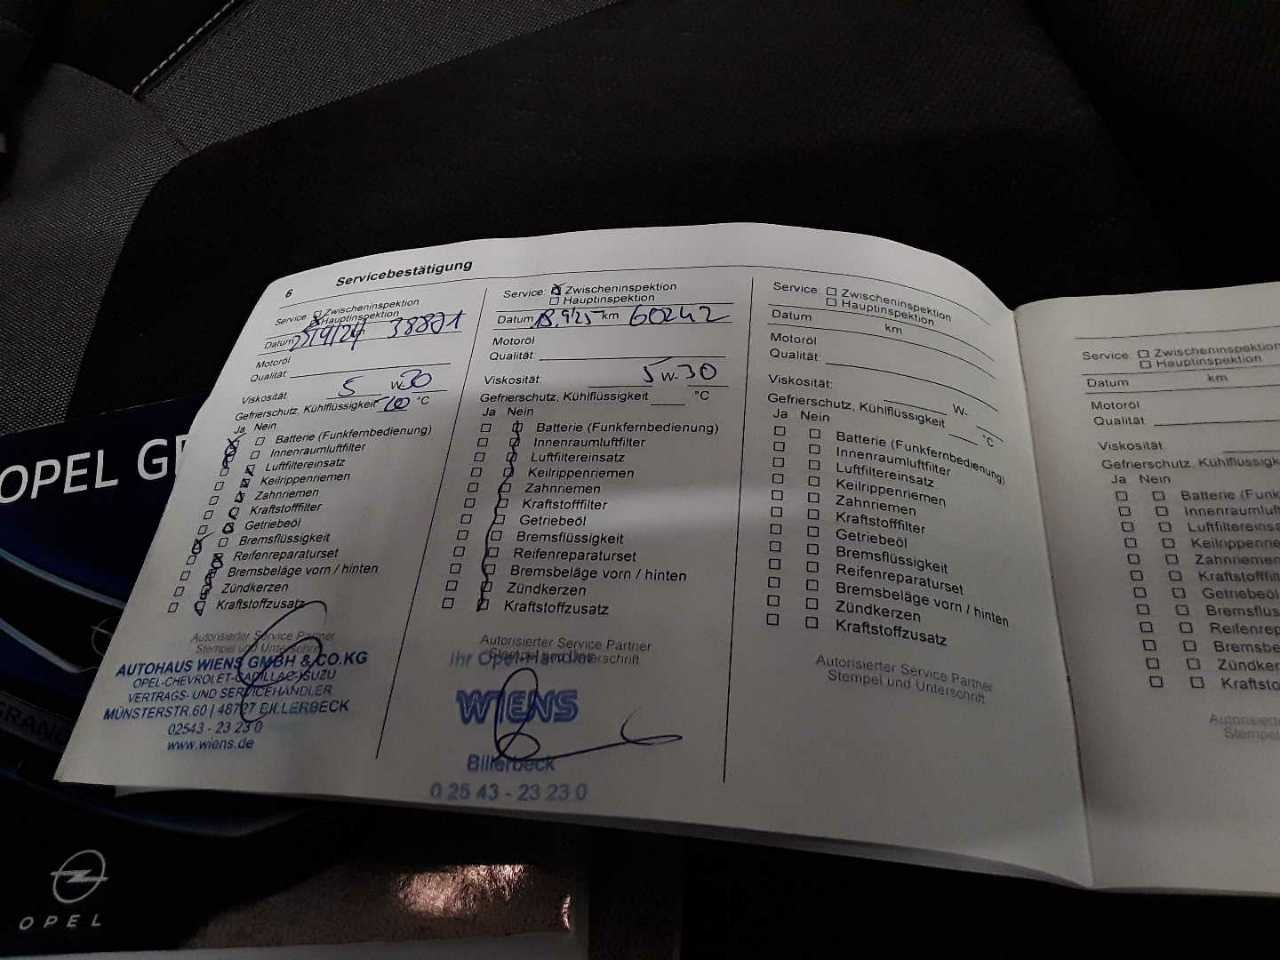 6 Servicebestätigung
Service: Zwischeninspektion
Hauptinspektion
Datum 38871
Motoröl
Qualität:
Viskosität: 5 W-30
Gefrierschutz, Kühlflüssigkeit °C
Ja Nein
Batterie (Funkfernbedienung)
Innenraumluftfilter
Luftfiltereinsatz
Keilrippenriemen
Zahnriemen
Kraftstofffilter
Getriebeöl
Bremsflüssigkeit
Reifenreparaturset
Bremsbeläge vorn / hinten
Zündkerzen
Kraftstoffzusatz
Autorisierter Service Partner
Stempel und Unterschrift
AUTOHAUS WIENS GMBH & CO.KG
OPEL-CHEVROLET-CADILLAC-ISUZU
VERTRAGS- UND SERVICEHÄNDLER
MÜNSTERSTR.60 | 48727 BILLERBECK
02543 - 23 23 0
www.wiens.de
Service: Zwischeninspektion
Hauptinspektion
Datum 18.9.25 km 60242
Motoröl
Qualität:
Viskosität: 5 W-30
Gefrierschutz, Kühlflüssigkeit °C
Ja Nein
Batterie (Funkfernbedienung)
Innenraumluftfilter
Luftfiltereinsatz
Keilrippenriemen
Zahnriemen
Kraftstofffilter
Getriebeöl
Bremsflüssigkeit
Reifenreparaturset
Bremsbeläge vorn / hinten
Zündkerzen
Kraftstoffzusatz
Autorisierter Service Partner
Stempel und Unterschrift
Ihr Opel-Händler
WIENS
Billerbeck
0 25 43 - 23 23 0
Service: Zwischeninspektion
Hauptinspektion
Datum km
Motoröl
Qualität:
Viskosität: W-
Gefrierschutz, Kühlflüssigkeit °C
Ja Nein
Batterie (Funkfernbedienung)
Innenraumluftfilter
Luftfiltereinsatz
Keilrippenriemen
Zahnriemen
Kraftstofffilter
Getriebeöl
Bremsflüssigkeit
Reifenreparaturset
Bremsbeläge vorn / hinten
Zündkerzen
Kraftstoffzusatz
Autorisierter Service Partner
Stempel und Unterschrift
Service: Zwischeninspektion
Hauptinspektion
Datum km
Motoröl
Qualität:
Viskosität
Gefrierschutz, Kühlflüssigk
Ja Nein
Batterie (Funk
Innenraumluft
Luftfiltereinsa
Keilrippenrie
Zahnriemen
Kraftstofffil
Getriebeöl
Bremsflüs
Reifenrep
Bremsbe
Zündker
Kraftsto
Autorisi
Stempe
OPEL G
GRAN
OPEL